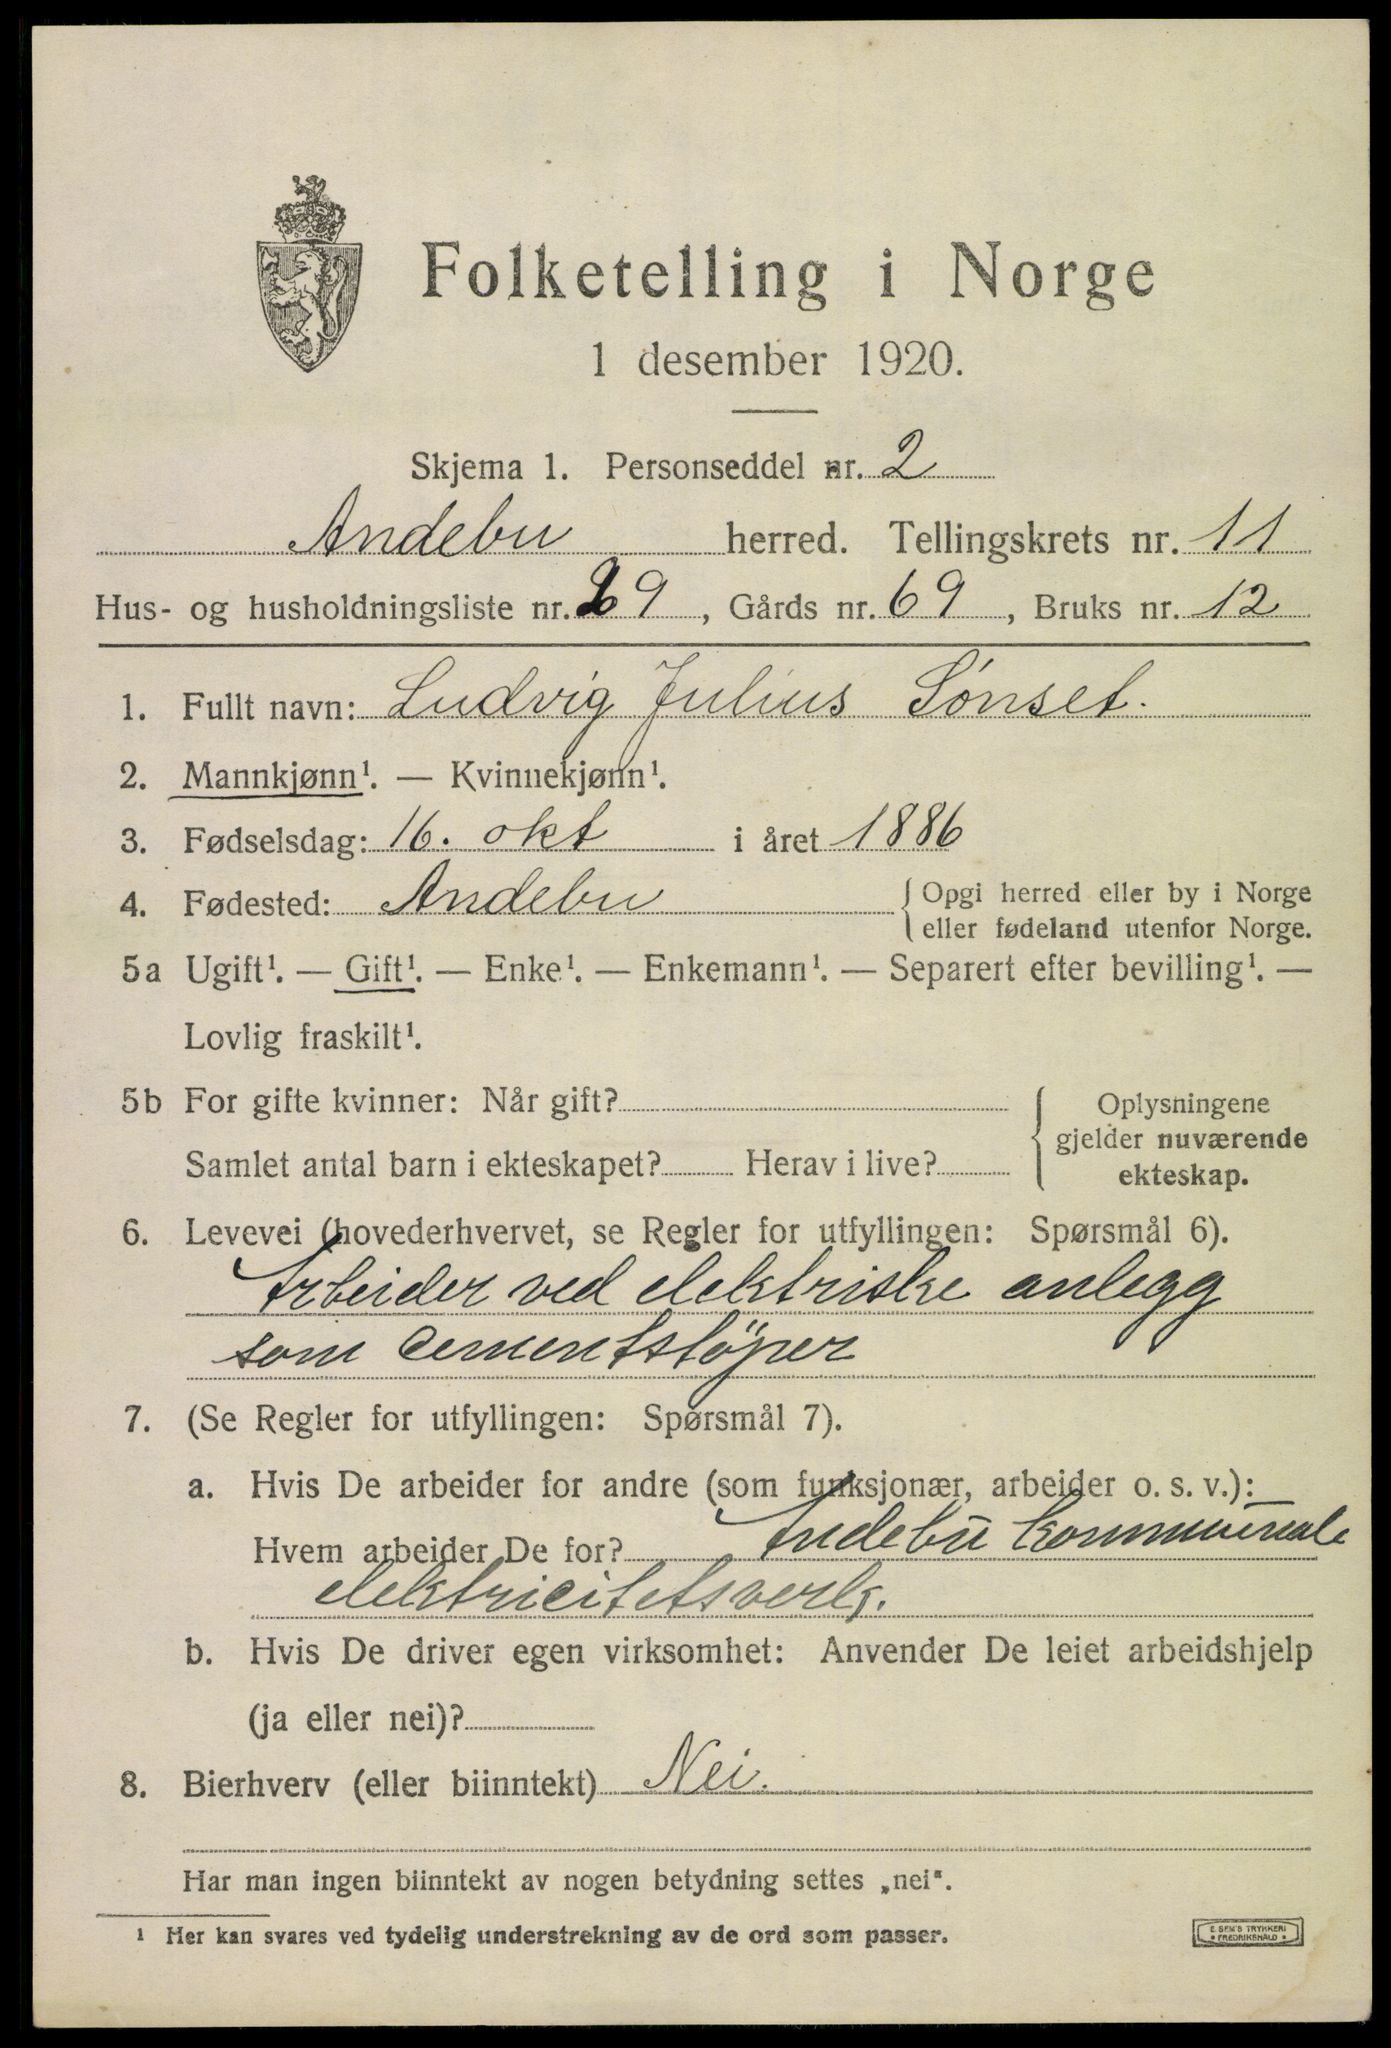 Folketelling i Norge
1 desember 1920.
Skjema 1. Personseddel nr. 2
Andebu herred. Tellingskrets nr. 11
Hus- og husholdningsliste nr. 29, Gårds nr. 69, Bruks nr. 12
1. Fullt navn: Ludvig Julius Sønset.
2. Mannkjønn¹. — Kvinnekjønn¹.
3. Fødselsdag: 16. okt i året 1886
4. Fødested: Andebu { Opgi herred eller by i Norge
eller fødeland utenfor Norge.
5a Ugift¹. — Gift¹. — Enke¹. — Enkemann¹. — Separert efter bevilling¹. —
Lovlig fraskilt¹.
5b For gifte kvinner: Når gift? { Oplysningene
gjelder nuværende
Samlet antal barn i ekteskapet? Herav i live?
ekteskap.
6. Levevei (hovederhvervet, se Regler for utfyllingen: Spørsmål 6).
Arbeider ved elektriske anlegg
som cementstöper
7. (Se Regler for utfyllingen: Spørsmål 7).
a. Hvis De arbeider for andre (som funksjonær, arbeider o. s. v.):
Hvem arbeider De for? Andebu kommunale
elektricitetsverk.
b. Hvis De driver egen virksomhet: Anvender De leiet arbeidshjelp
(ja eller nei)?
8. Bierhverv (eller biinntekt) Nei.
Har man ingen biinntekt av nogen betydning settes „nei".
¹ Her kan svares ved tydelig understrekning av de ord som passer.
E. SEM'S TRYKKERI
• FREDRIKSHALD •